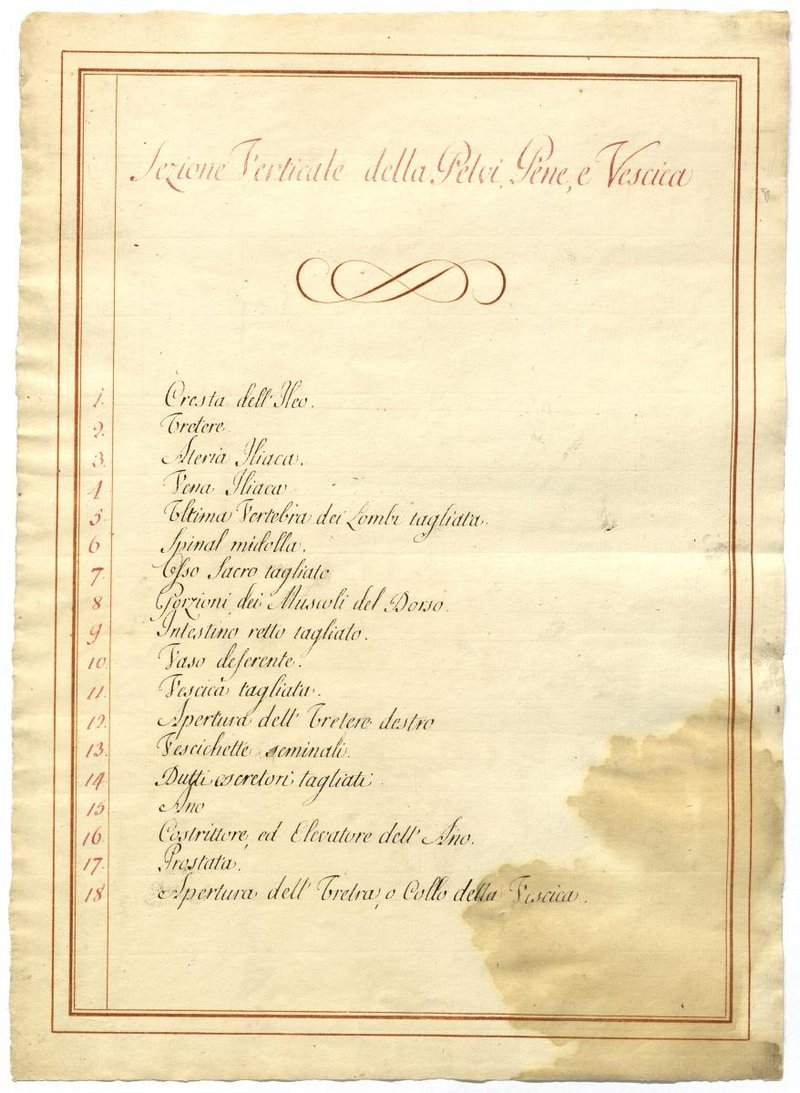 Sezione Verticale della Pelvi, Pene, e Vescica
1. Cresta dell' Ileo.
2. Uretere.
3. Ateria Iliaca.
4 Vena Iliaca.
5 Ultima Vertebra dei Lombi tagliata.
6 Spinal midolla.
7. Osso Sacro tagliato
8 Porzioni dei Muscoli del Dorso.
9 Intestino retto tagliato.
10. Vaso deferente.
11. Vescica tagliata.
12. Apertura dell' Uretere destro
13. Vescichette seminali.
14 Dutti escretori tagliati.
15. Ano
16. Costrittore, ed Elevatore dell' Ano.
17. Prostata.
18. Apertura dell' Uretra, o Collo della Viscica.